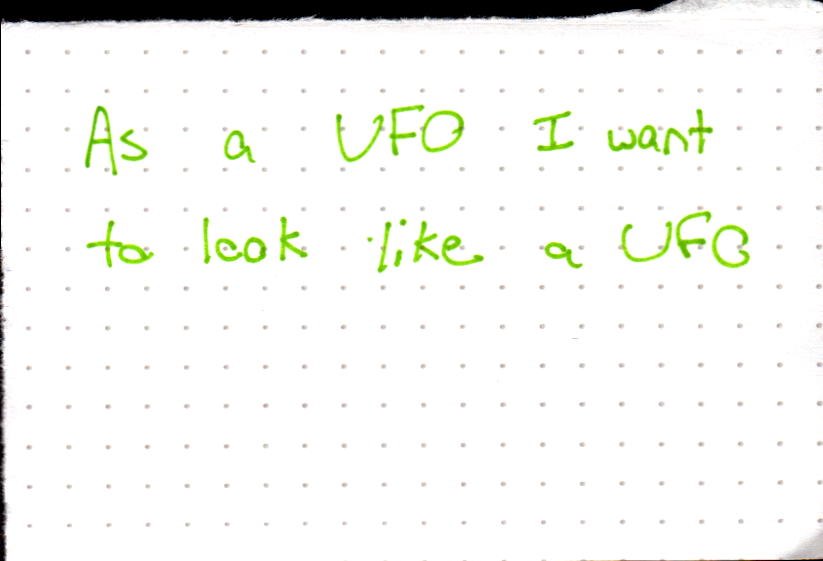 As a UFO I want
to look like a UFO